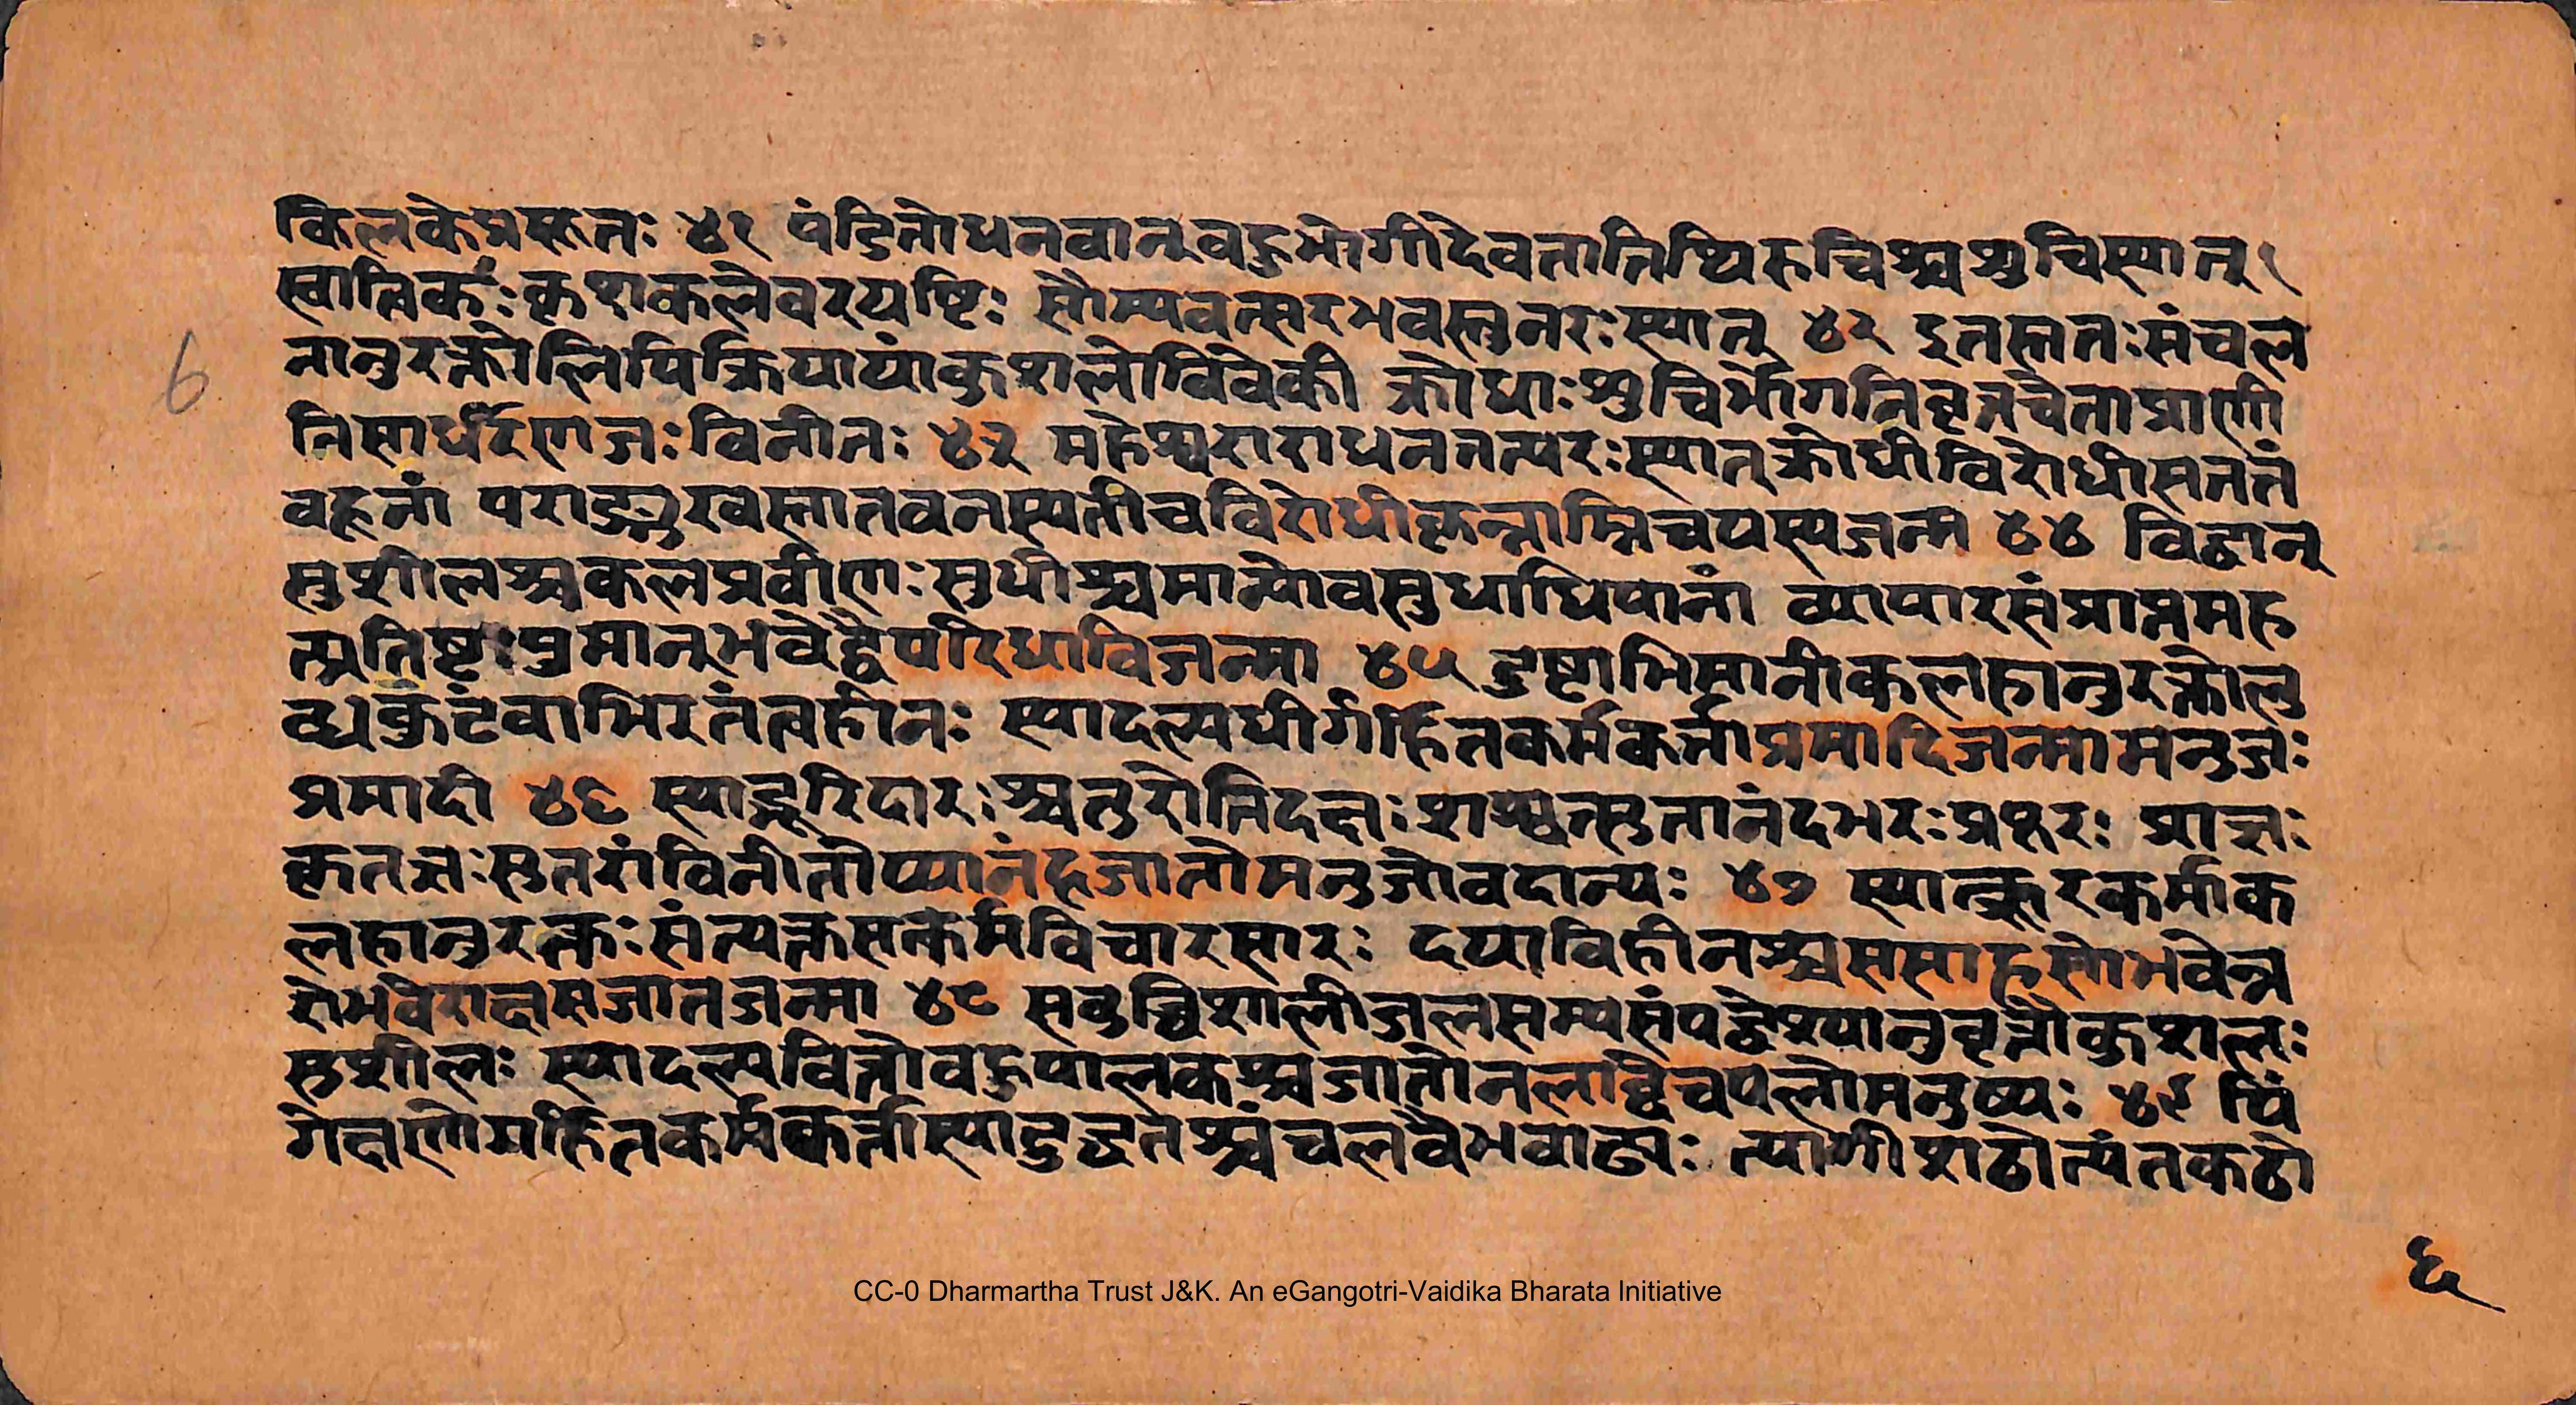 किलकेप्रसूतः ४१ पंडितोधनवान्वहुभोगीदेवतातिथिरुचिश्चशुचिस्यात्
स्वात्विकः कृशकलेवरयष्टिः सौम्यवत्सरभवस्तुनरःस्यात् ४२ इतस्ततःसंचल
नानुरक्तोलिपिक्रियायांकुशलोविवेकी क्रोधाःशुचिर्भोगनिवृत्तचेताप्राणी
तिसाधारणजःविनीतः ४३ महेश्वराराधनतत्परःस्यात्क्रोधीविरोधीसततं
वहूनां पराङ्मुखस्तातवनस्यतीचविरोधीकृन्नाम्निचयस्यजन्म ४४ विद्वान्
सुशीलश्चकलप्रवीणःसुधीश्चमान्योवसुधाधिपानां व्यापारसंप्राप्तमह
त्प्रतिष्टःपुमान्भवेद्वैपरिधाविजन्मा ४५ दुष्टाभिमानीकलहानुरक्तोलु
व्धकुटंवाभिरतंत्वहीनः स्यादल्पधीर्गर्हितकर्मकर्त्ताप्रमादिजन्मामनुजः
प्रमादी ४६ स्याद्भूरिदारःश्चतुरोतिदक्षःशश्वत्सुतानंदभरःप्रपूरः प्राज्ञः
कृतज्ञःसुतरांविनीतोप्यानंदजातोमनुजोवदान्यः ४७ स्यात्क्रूरकर्माक
लहानुरक्तःसंत्यक्तसत्कर्मविचारसारः दयाविहीनश्चससाहसोभवेन्न
रोभवेराक्षसजातजन्मा ४८ सवुद्धिशालीजलसस्यसंपद्वैश्यानुवृत्तौकुशलः
सुशीलः स्यादल्पवित्तोवहुपालकश्चजातोनलाव्देचपलोमनुष्यः ४९ पिं
गेक्षणोगर्हितकर्मकर्त्तास्यादुद्धतश्चंचलवैभवाढ्यः त्यागीशठोत्यंतकठो
6
६
CC-0 Dharmartha Trust J&K. An eGangotri-Vaidika Bharata Initiative